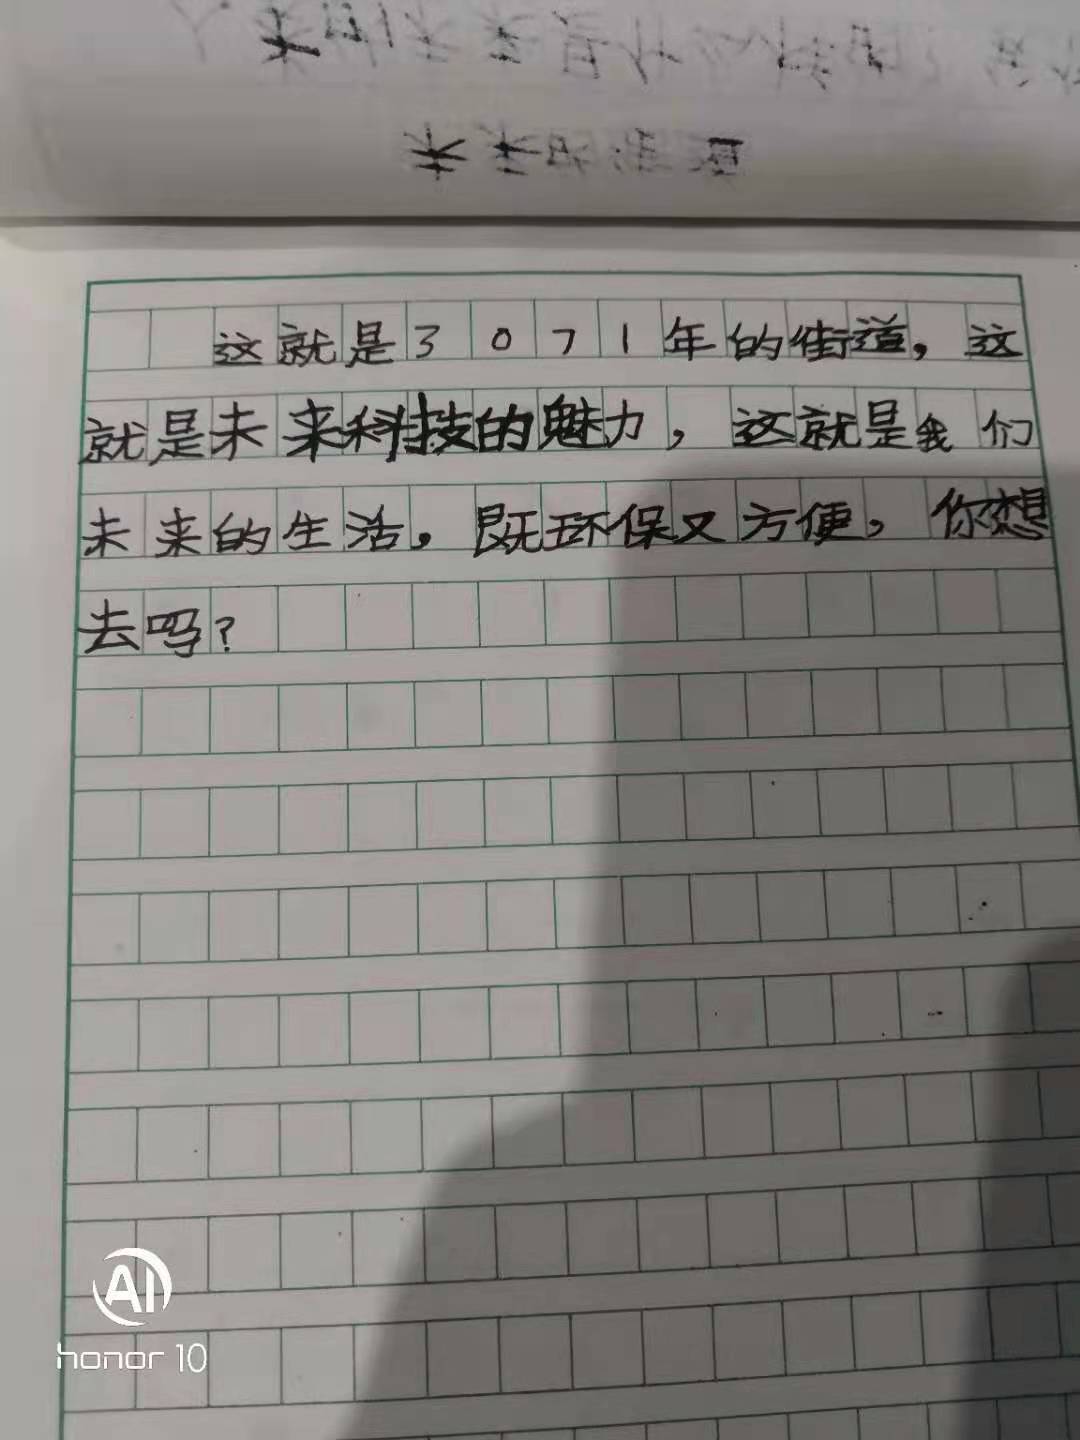 未来的街道
这就是3071年的街道，这
就是未来科技的魅力，这就是我们
未来的生活，既环保又方便，你想
去吗？
AI
honor 10